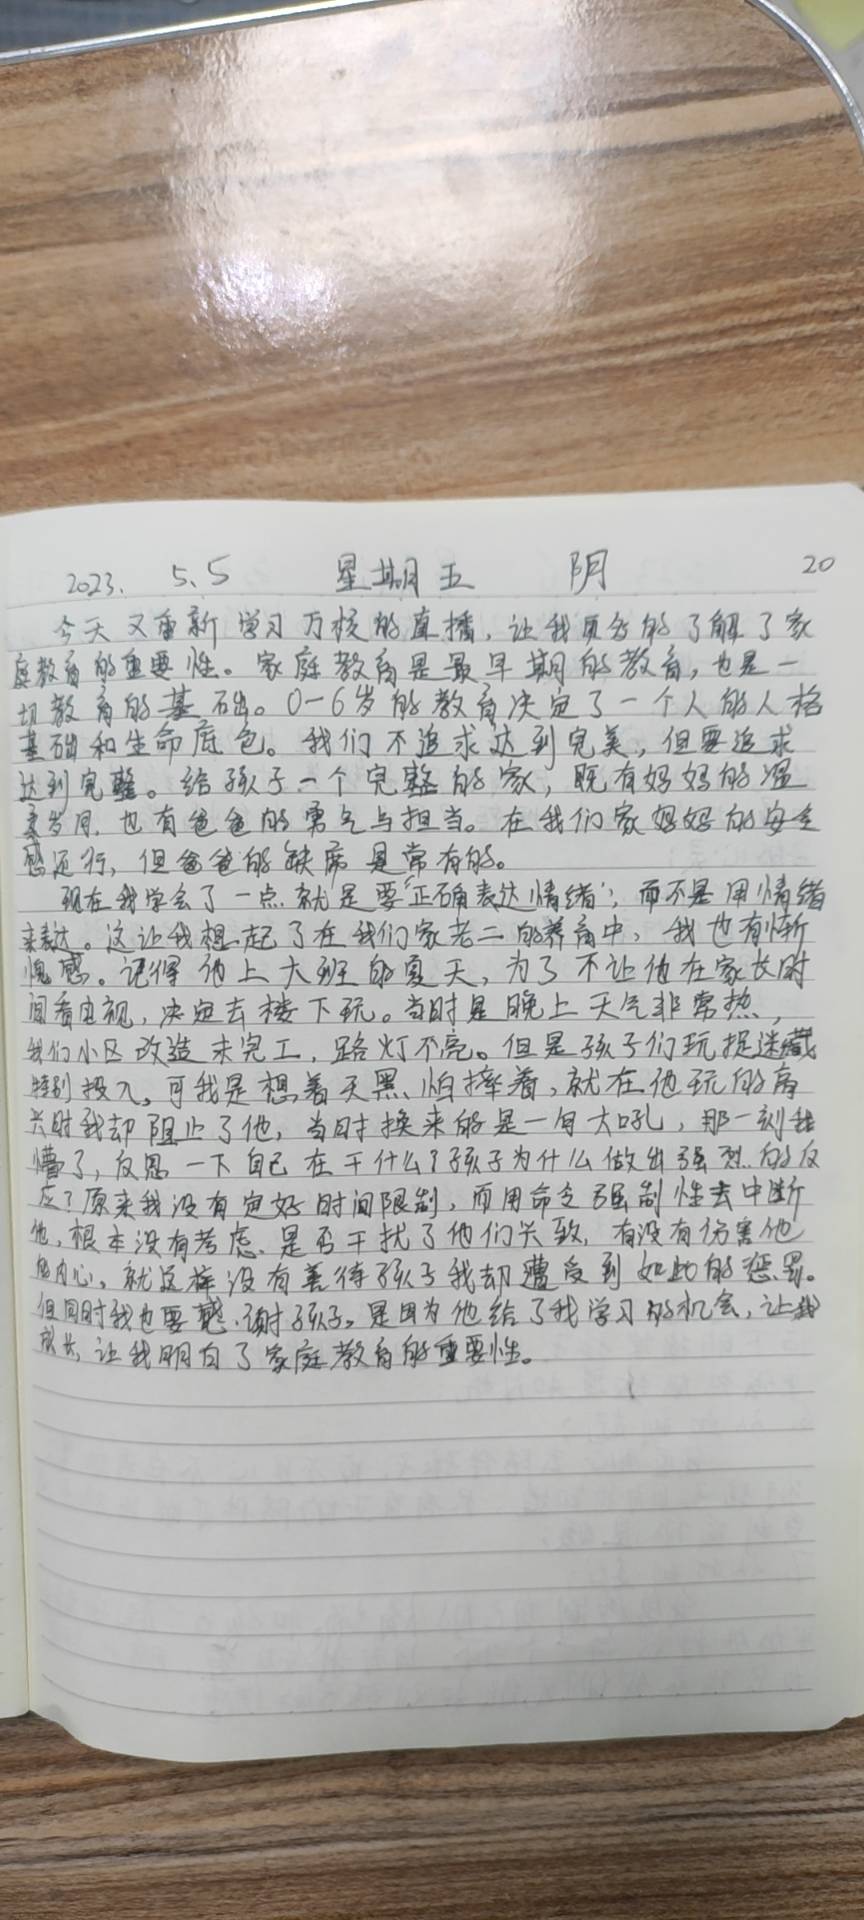 2023. 5.5 星期五 阴 20
今天又重新学习万核的直播，让我更多的了解了家
庭教育的重要性。家庭教育是最早期的教育，也是一
切教育的基础。0-6岁的教育决定了一个人的人格
基础和生命底色。我们不追求达到完美，但要追求
达到完整。给孩子一个完整的家，既有妈妈的温
也有爸爸的勇气与担当。在我们家妈妈的安全
感还行，但爸爸的缺席是常有的。
现在我学会了一点就是要“正确表达情绪”，而不是用情绪
来表达。这让我想起了在我们家老二的养育中，我也有惭
愧感。记得他上大班的夏天，为了不让他在家长时
间看电视，决定去楼下玩。当时是晚上天气非常热，
我们小区改造未完工，路灯不亮。但是孩子们玩捉迷藏
特别投入。可我是想着天黑怕摔着，就在他玩的高
兴时我却阻止了他，当时换来的是一句大吼，那一刻我
懵了，反思一下自己在干什么？孩子为什么做出强烈的反
应？原来我没有定好时间限制，而用命令强制性去中断
他，根本没有考虑是否干扰了他们兴致，有没有伤害他
的内心。就这样没有善待孩子我却遭受到如此的惩罚。
但同时我也要感谢孩子。是因为他给了我学习的机会，让我
成长，让我明白了家庭教育的重要性。